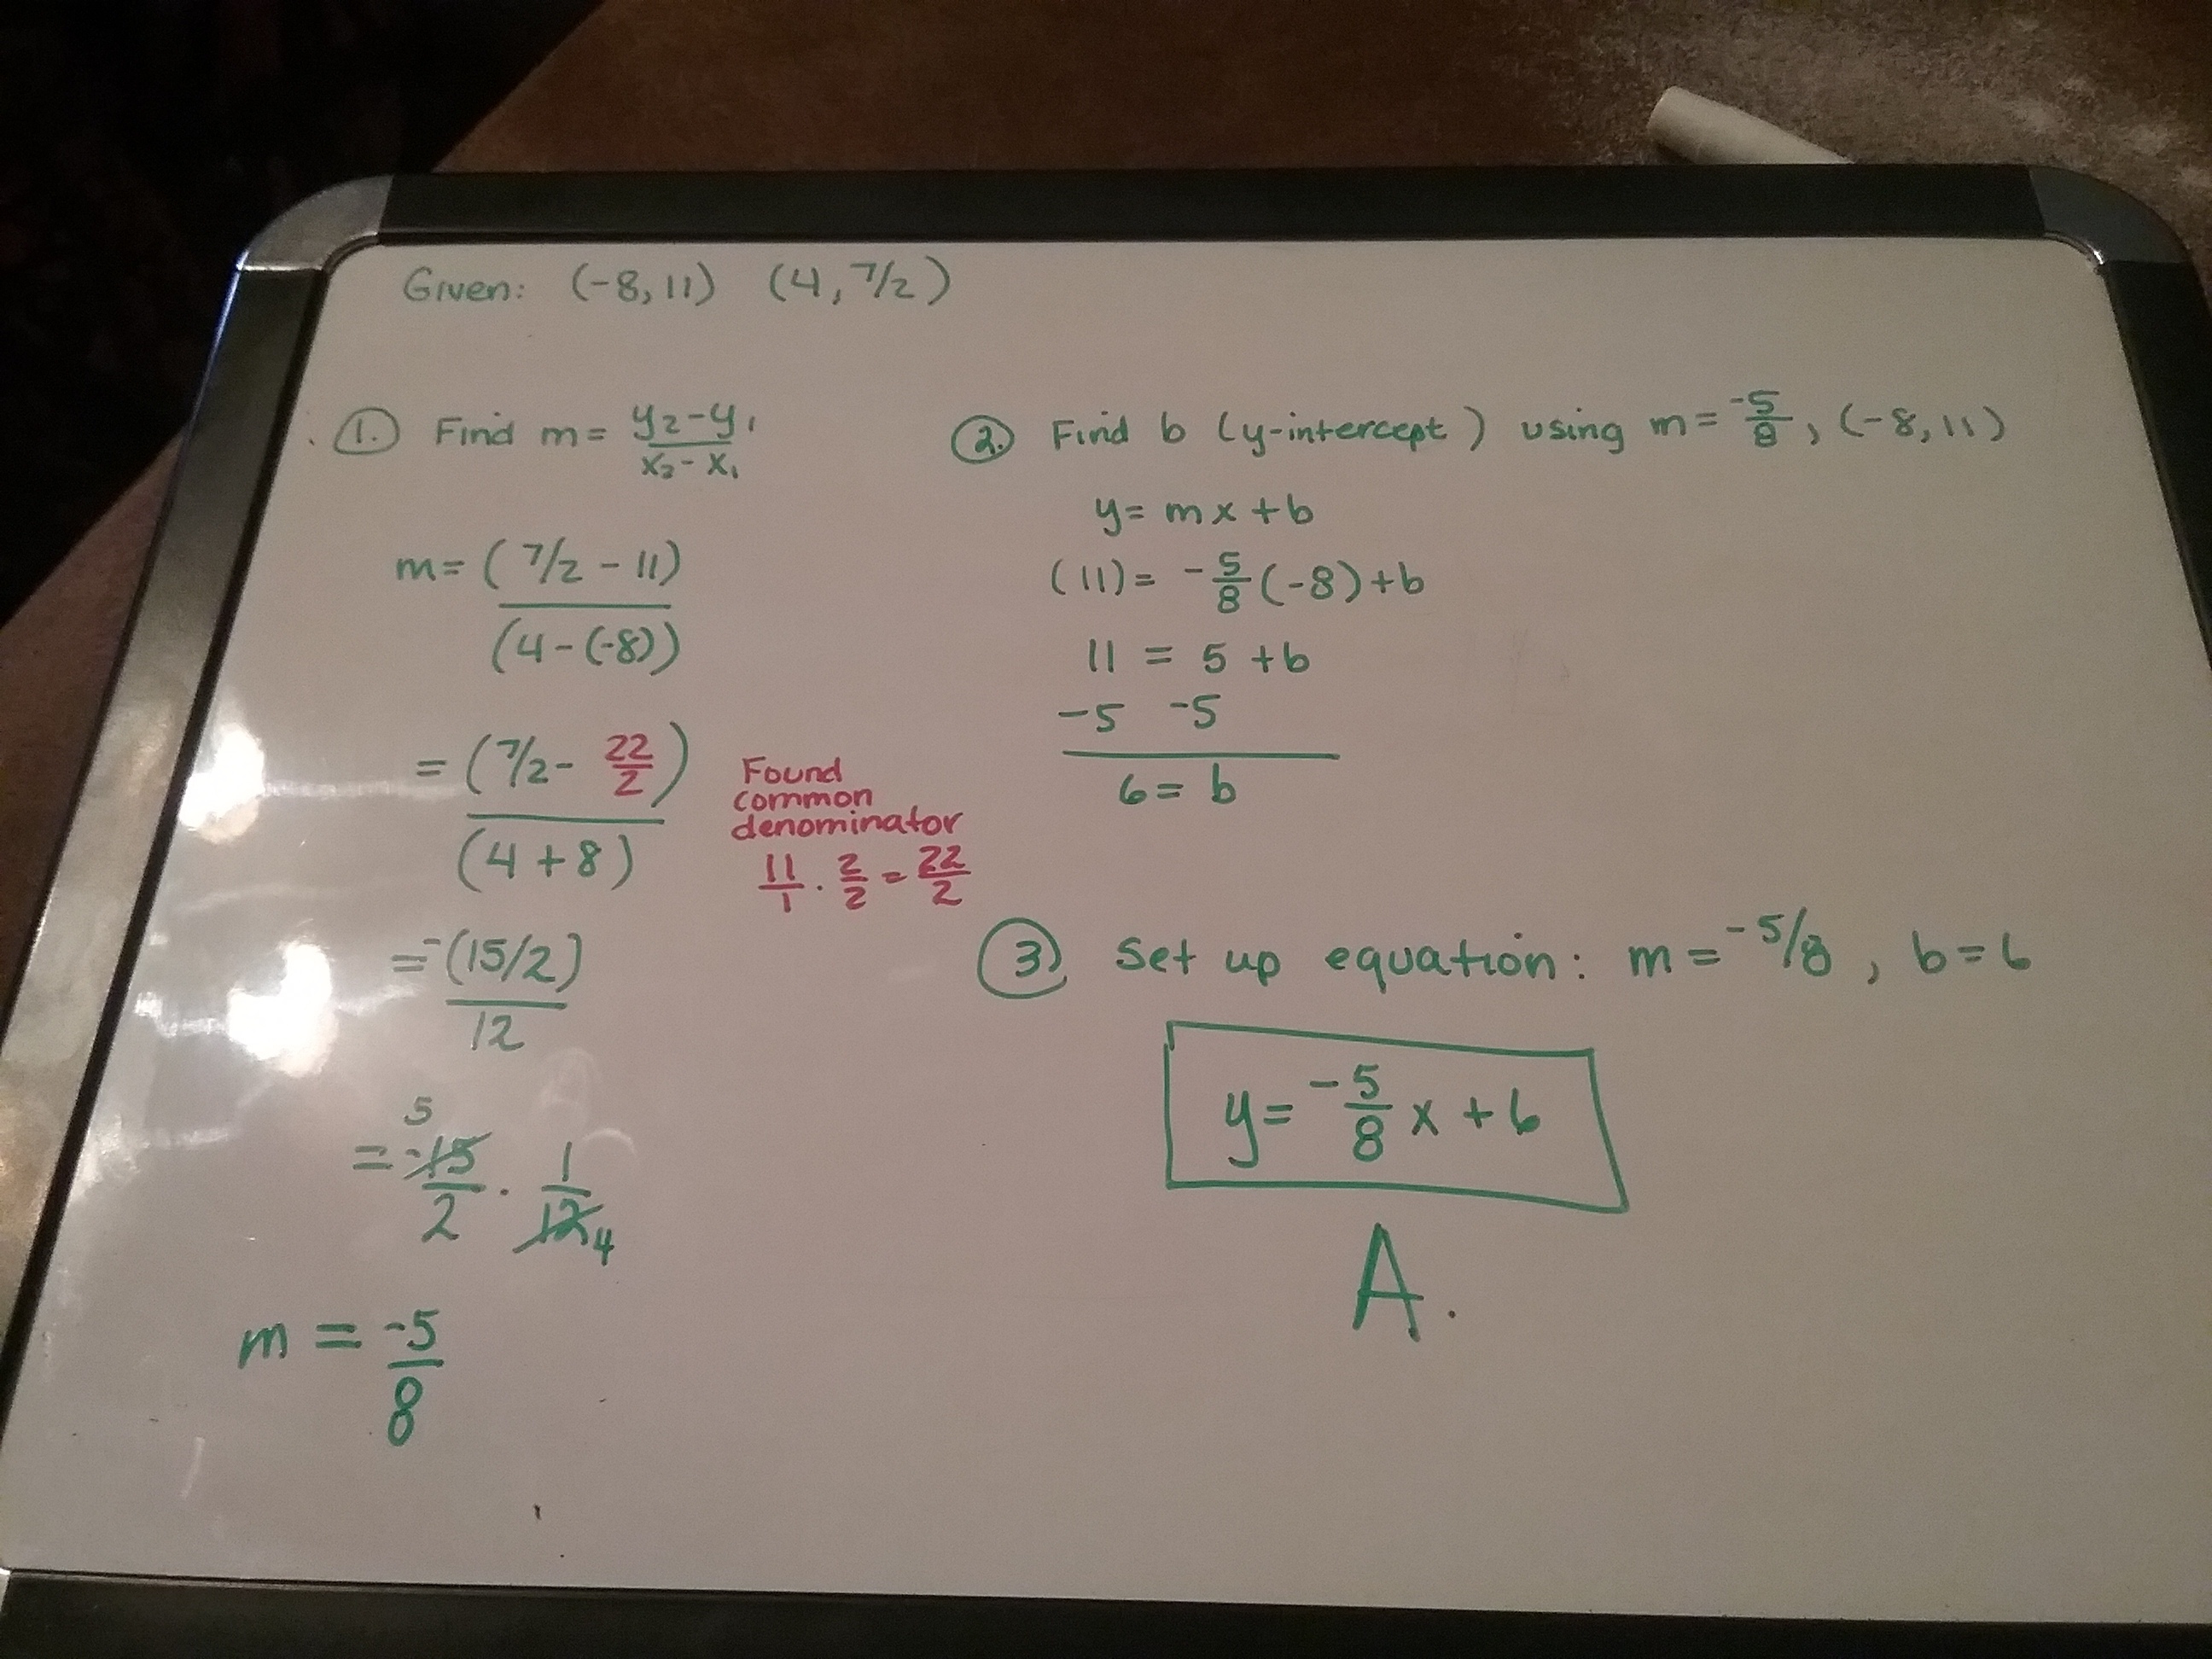 Given: (-8, 11) (4, 7/2)
1. Find m = y₂-y₁
x₂-x₁
m = (7/2 - 11)
(4-(-8))
= (7/2 - 22/2)
(4+8)
Found
common
denominator
11/1 · 2/2 = 22/2
= -(15/2)
12
5
= -15/2 · 1/12 4
m = -5
8
2. Find b (y-intercept) using m = -5/8, (-8, 11)
y = mx + b
(11) = -5/8 (-8) + b
11 = 5 + b
-5 -5
6 = b
3. Set up equation: m = -5/8, b = 6
y = -5/8 x + 6
A.